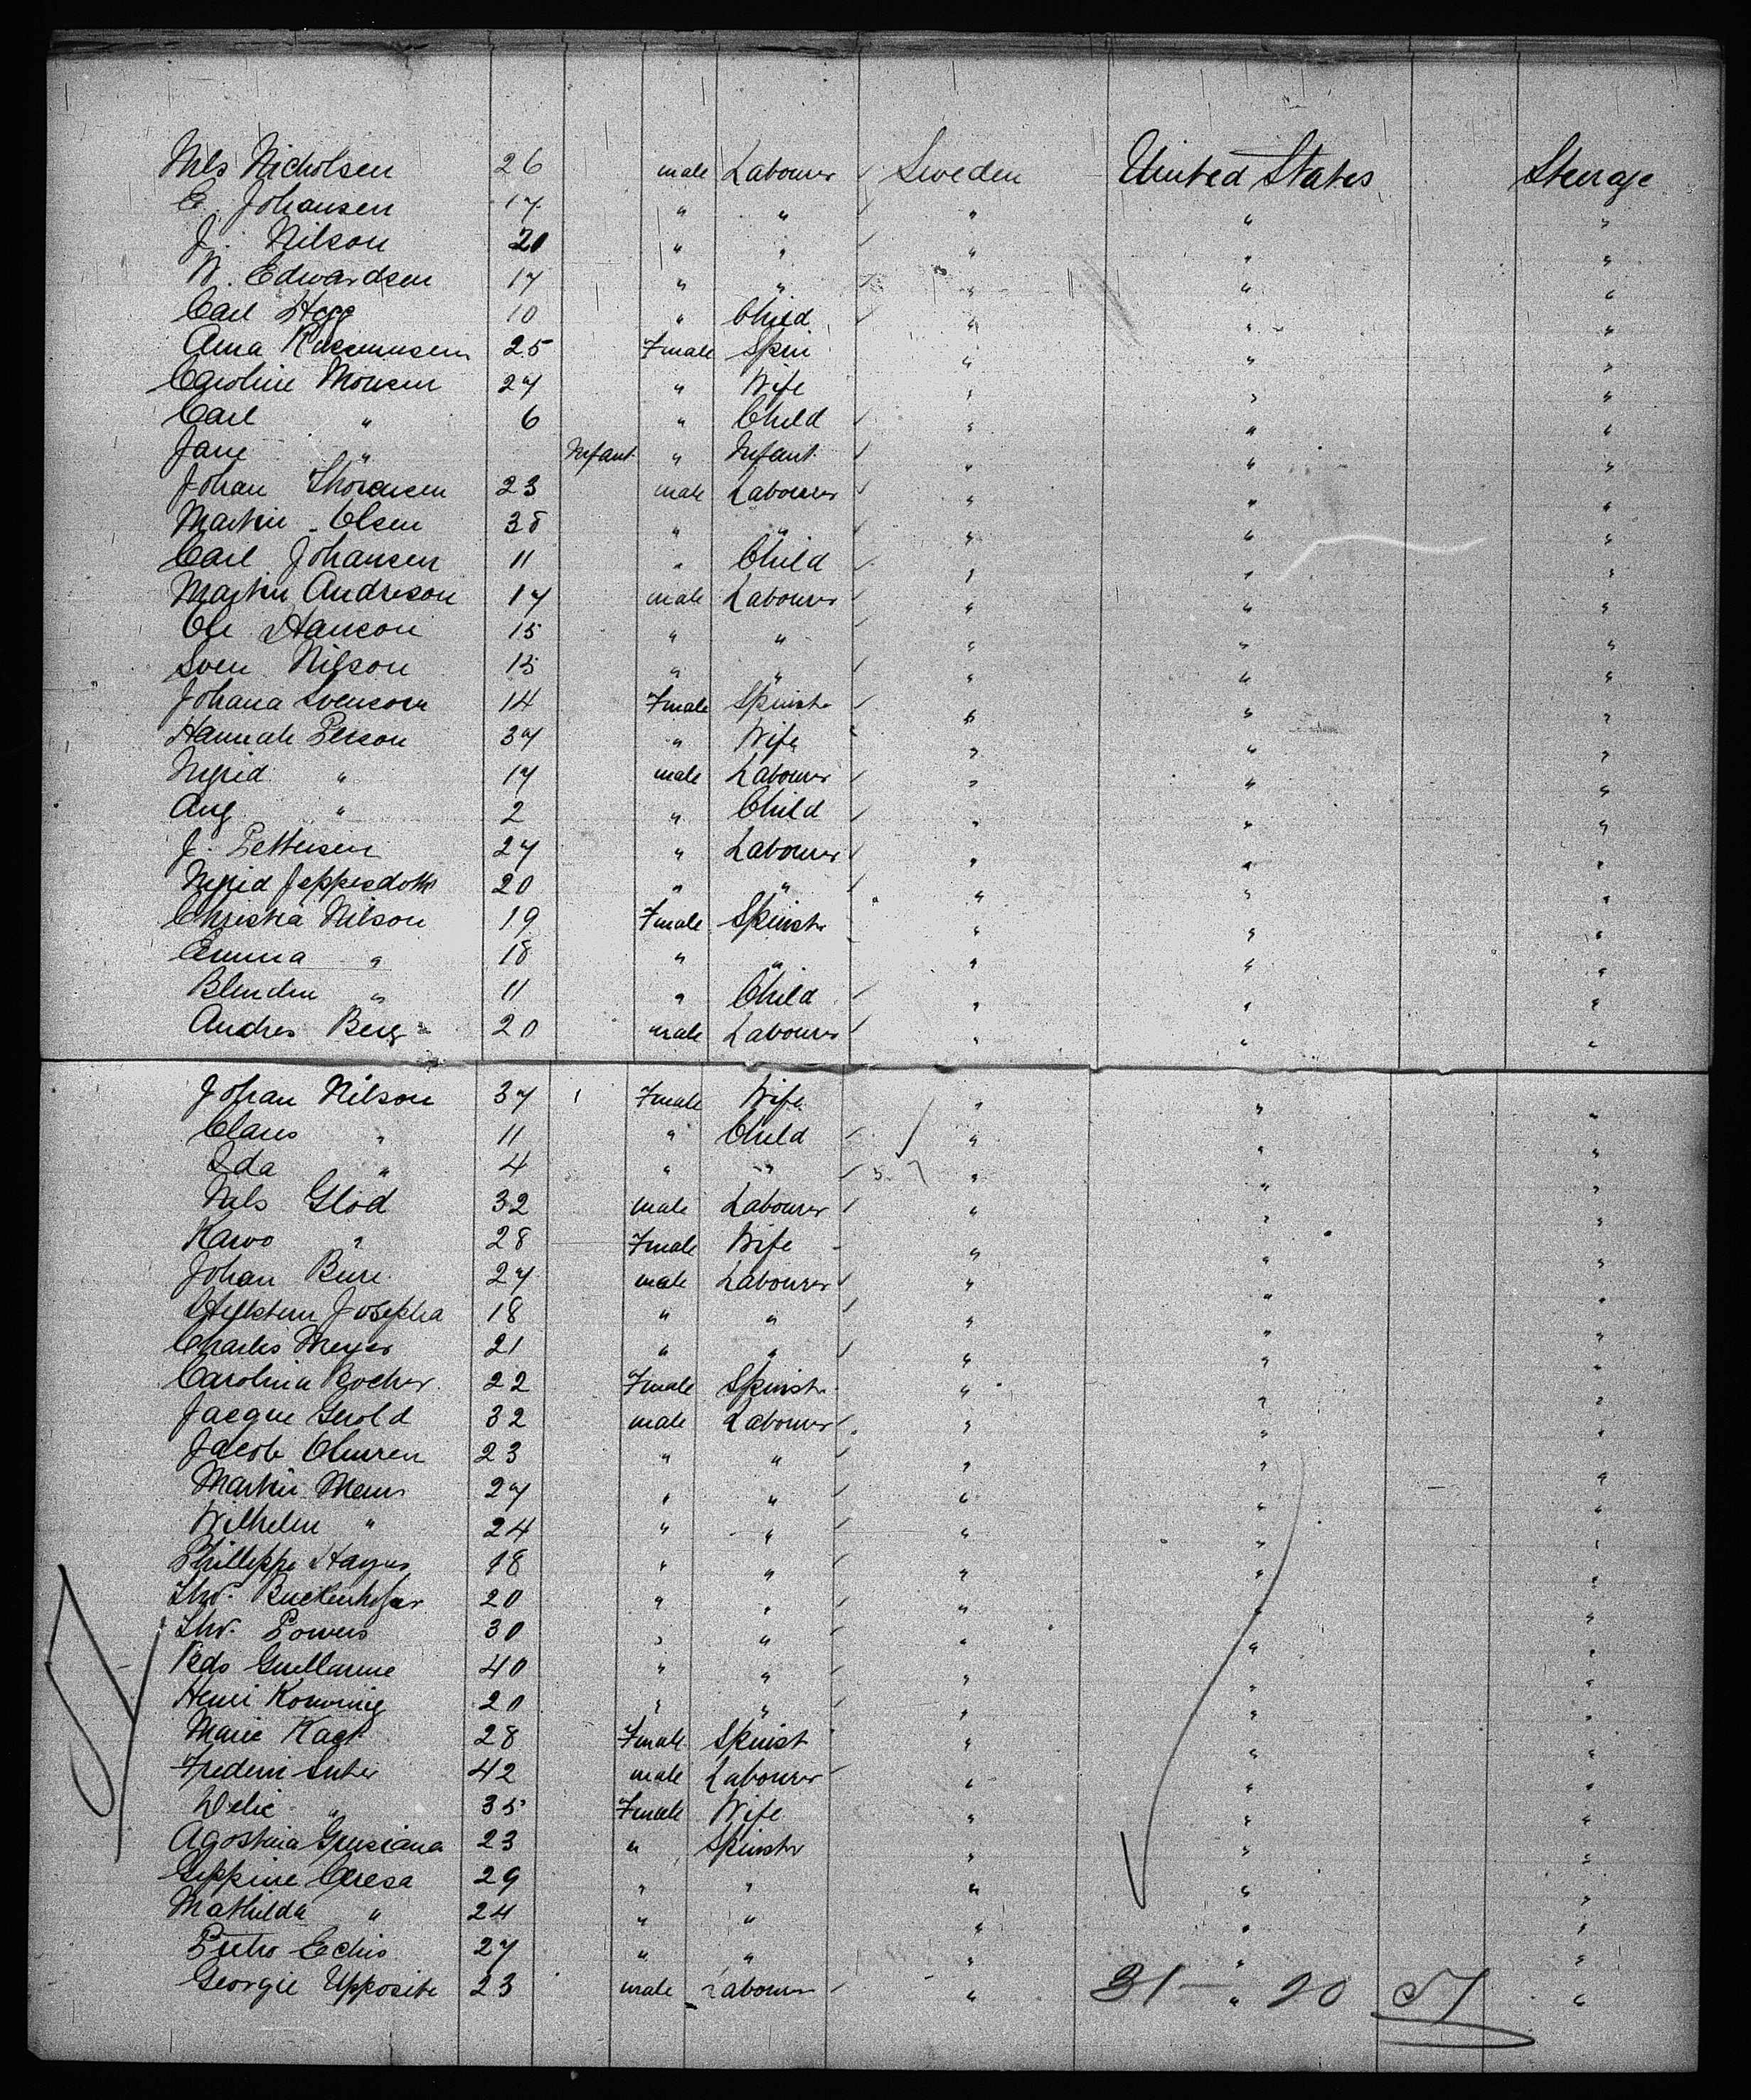 Nils Nicholsen 26 male Labourer Sweden United States Steerage
E. Johansen 17 " " " " "
J. Nilson 20 " " " " "
W. Edwardsen 17 " " " " "
Carl Hegg 10 " Child " " "
Anna Rasmusen 25 Female Spin " " "
Caroline Monsen 27 " Wife " " "
Carl " 6 " Child " " "
Jane " Infant " Infant " " "
Johan Thorensen 23 male Labourer " " "
Martin Olsen 38 " " " " "
Carl Johansen 11 " Child " " "
Martin Andreson 17 male Labourer " " "
Ole Hanson 15 " " " " "
Sven Nilson 15 " " " " "
Johana Svenson 14 Female Spinstr " " "
Hannah Person 37 " Wife " " "
Ingrid " 17 male Labourer " " "
Aug " 2 " Child " " "
J. Pettersen 27 " Labourer " " "
Ingrid Jeppesdottr 20 " " " " "
Christia Nilson 19 Female Spinstr " " "
Emma " 18 " " " " "
Blenden " 11 " Child " " "
Andres Berg 20 male Labourer " " "
Johan Nilson 37 Female Wife " " "
Claus " 11 " Child " " "
Ida " 4 " " " " "
Nils Glod 32 male Labourer " " "
Karvo " 28 Female Wife " " "
Johan Bure 27 male Labourer " " "
Josepha 18 " " " " "
Charles Meyer 21 " " " " "
Carolina Bocher 22 Female Spinstr " " "
Jacque Gerold 32 male Labourer " " "
Jacob 23 " " " " "
Martin Mens 27 " " " " "
Wilhelm " 24 " " " " "
Phillippe Hayus 18 " " " " "
Thr. Buckenhofer 20 " " " " "
Thr. Powers 30 " " " " "
Peds Guellaume 40 " " " " "
Henri Komming 20 " " " " "
Marie Kagt 28 Female Spinst " " "
Frederic Suter 42 male Labourer " " "
Delie " 35 Female Wife " " "
Agostina Grusiana 23 " Spinstr " " "
Geppine Ceresa 29 " " " " "
Mathilda " 24 " " " " "
Pietro Echis 27 " " " " "
Georgie Upposite 23 male Labourer " " "
31 - 20 51